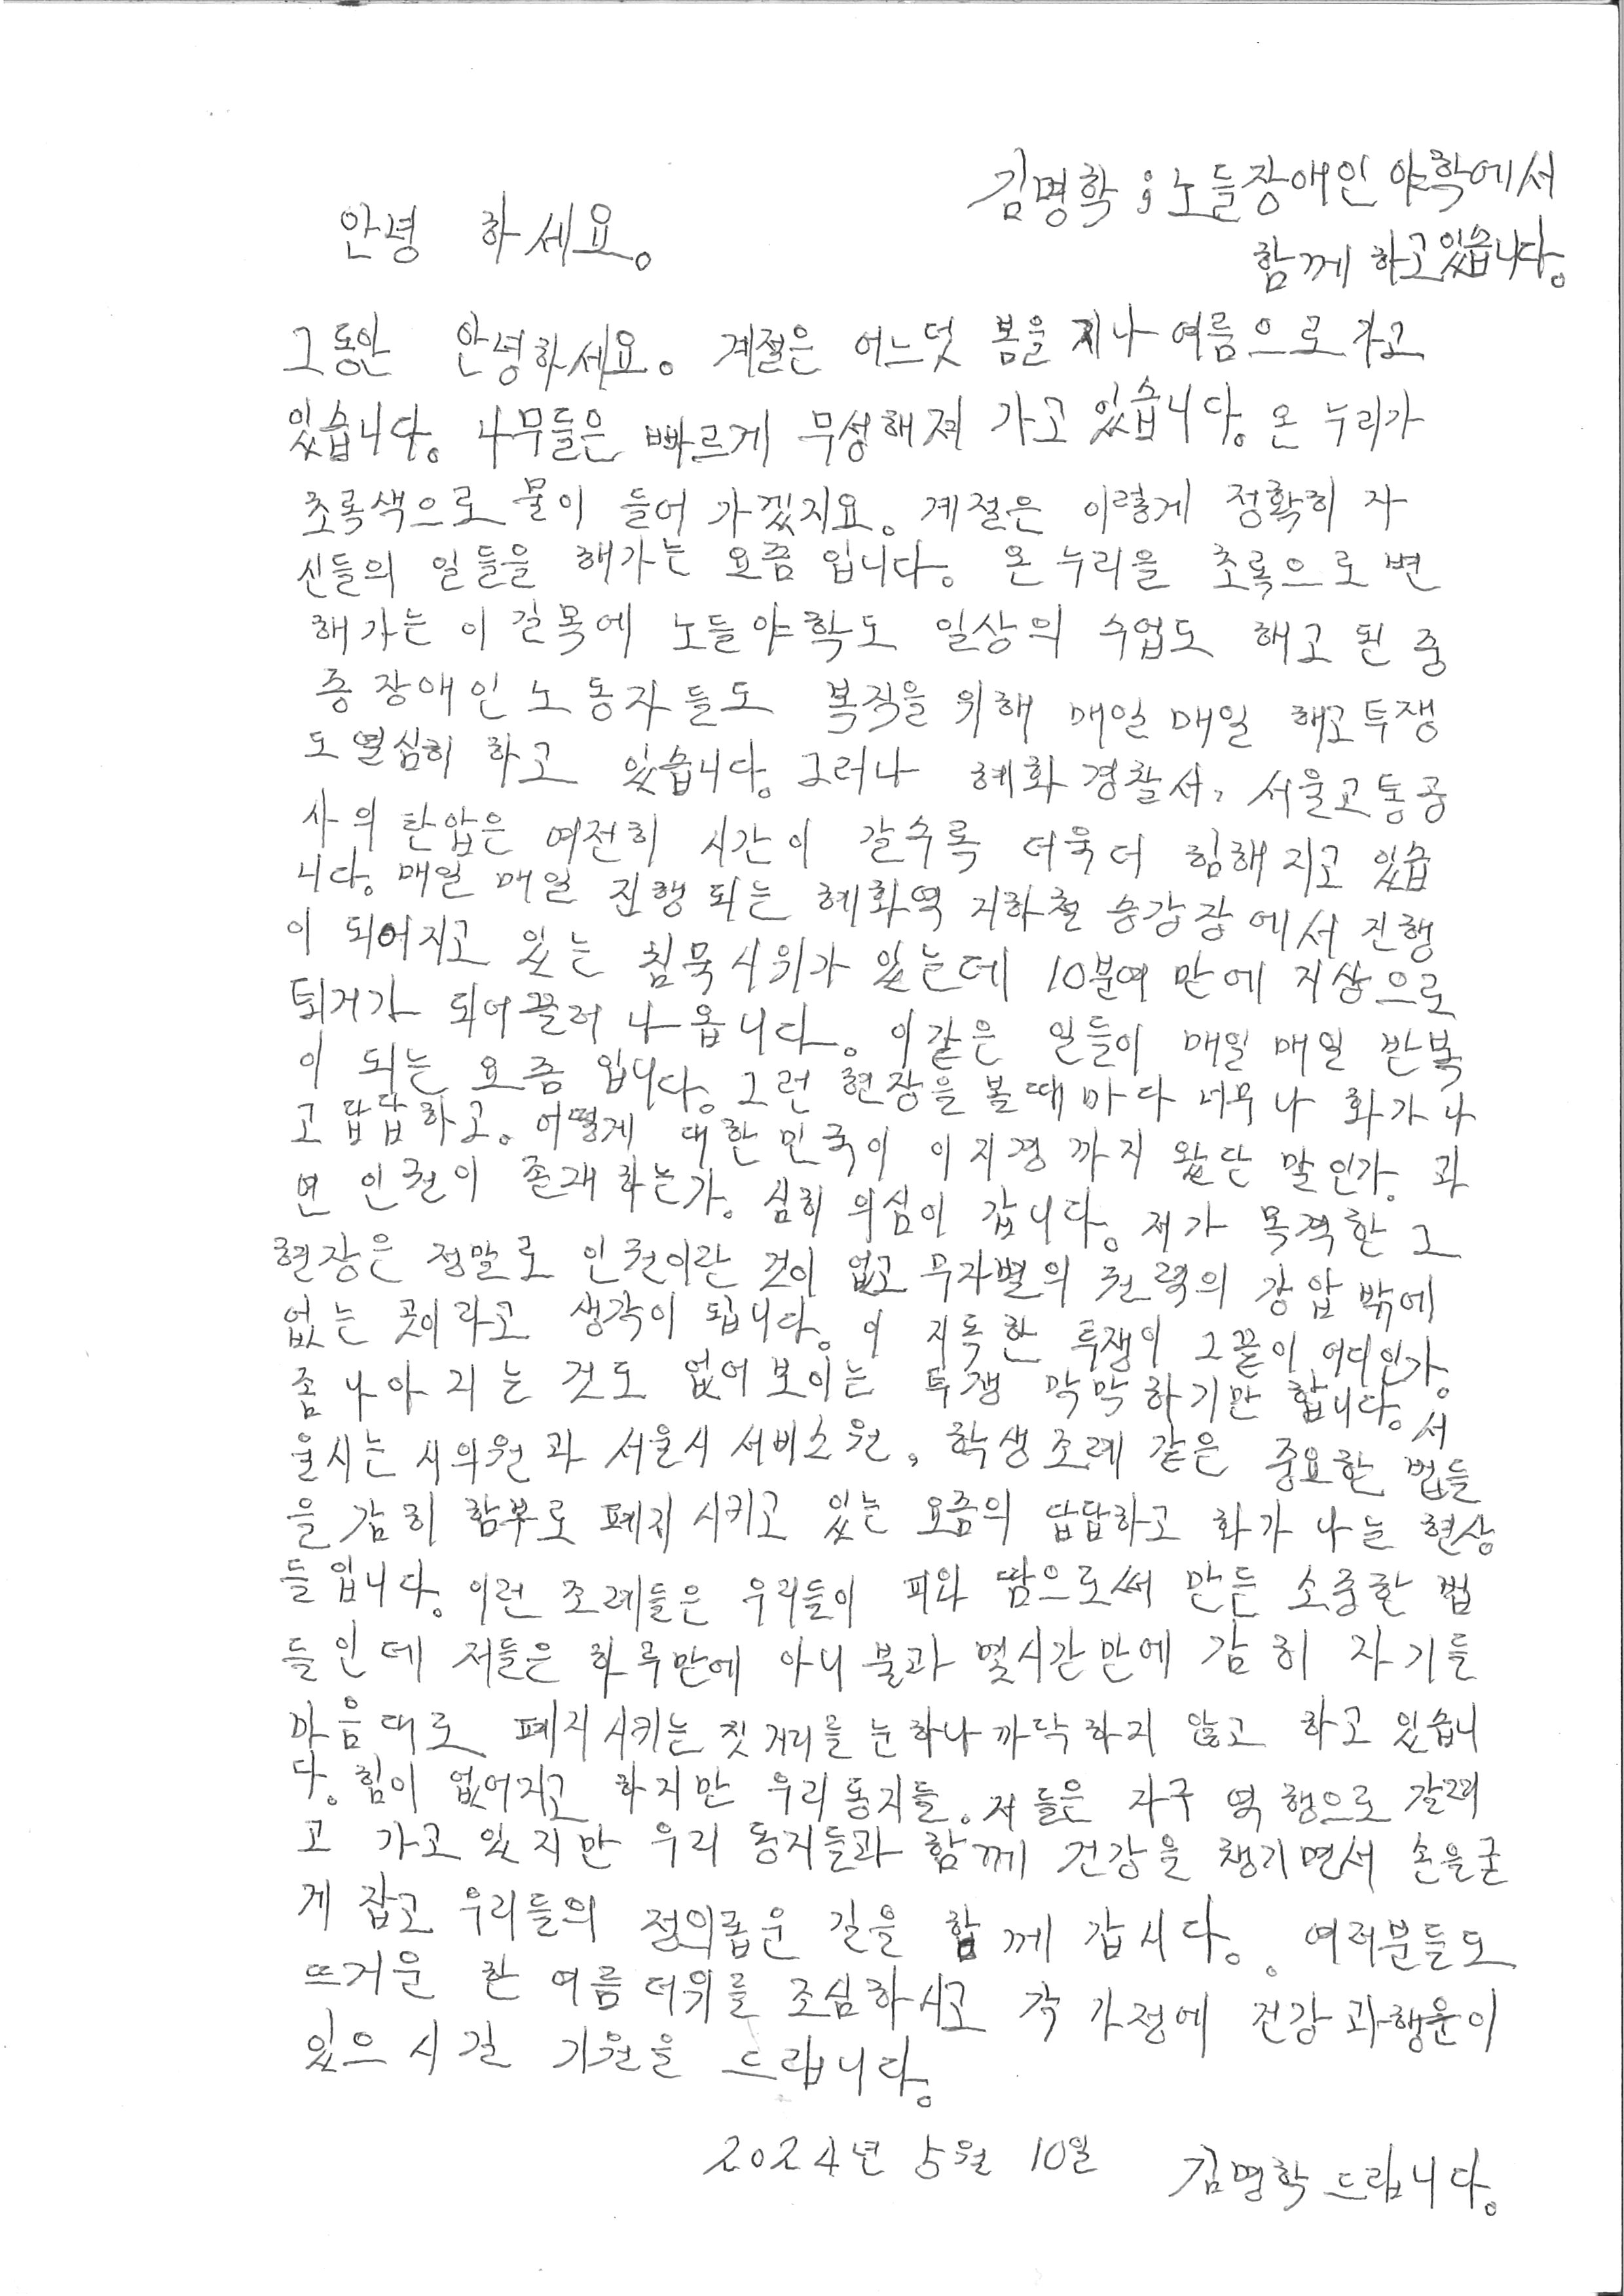 김명학 ; 노들장애인 야학에서
함께 하고 있습니다.
안녕 하세요.
그동안 안녕하세요. 계절은 어느덧 봄을 지나 여름으로 가고
있습니다. 나무들은 빠르게 무성해져 가고 있습니다. 온 누리가
초록색으로 물이 들어 가겠지요. 계절은 이렇게 정확히 자
신들의 일들을 해가는 요즘 입니다. 온 누리을 초록으로 변
해가는 이 길목에 노들야학도 일상의 수업도 해고 된 중
증 장애인 노동자들도 복직을 위해 매일 매일 해고투쟁
도 열심히 하고 있습니다. 그러나 혜화 경찰서, 서울교통공
사의 탄압은 여전히 시간이 갈수록 더욱더 험해 지고 있습
니다. 매일 매일 진행 되는 혜화역 지하철 승강장에서 진행
이 되어지고 있는 침묵시위가 있는데 10분여 만에 지상으로
퇴거가 되어 끌려 나옵니다. 이같은 일들이 매일 매일 반복
이 되는 요즘 입니다. 그런 현장을 볼때 마다 너무나 화가 나
고 답답하고. 어떻게 대한민국이 이지경 까지 왔단 말인가. 과
연 인권이 존재 하는가. 심히 의심이 갑니다. 제가 목격한 그
현장은 정말로 인권이란 것이 없고 무자별의 권력의 강압 밖에
없는 곳이라고 생각이 됩니다. 이 지독한 투쟁이 그끝이 어디인가.
좀 나아 지는 것도 없어 보이는 투쟁 막막하기만 합니다. 서
울시는 시의원과 서울시 서비스원, 학생조례 같은 중요한 법들
을 감히 함부로 폐지 시키고 있는 요즘의 답답하고 화가 나는 현상
들입니다. 이런 조례들은 우리들이 피와 땀으로써 만든 소중한 법
들인데 저들은 하루만에 아니 불과 몇시간만에 감히 자기들
마음대로 폐지시키는 짓거리를 눈하나 까닥하지 않고 하고 있습니
다. 힘이 없어지고 하지만 우리동지들. 저들은 자구 역행으로 갈려
고 가고 있지만 우리 동지들과 함께 건강을 챙기면서 손을굳
게 잡고 우리들의 정의롭운 길을 함께 갑시다. 여러분들도
뜨거운 한 여름 더위를 조심하시고 각 가정에 건강과행운이
있으시길 기원을 드립니다.
2024년 5월 10일 김명학 드립니다.